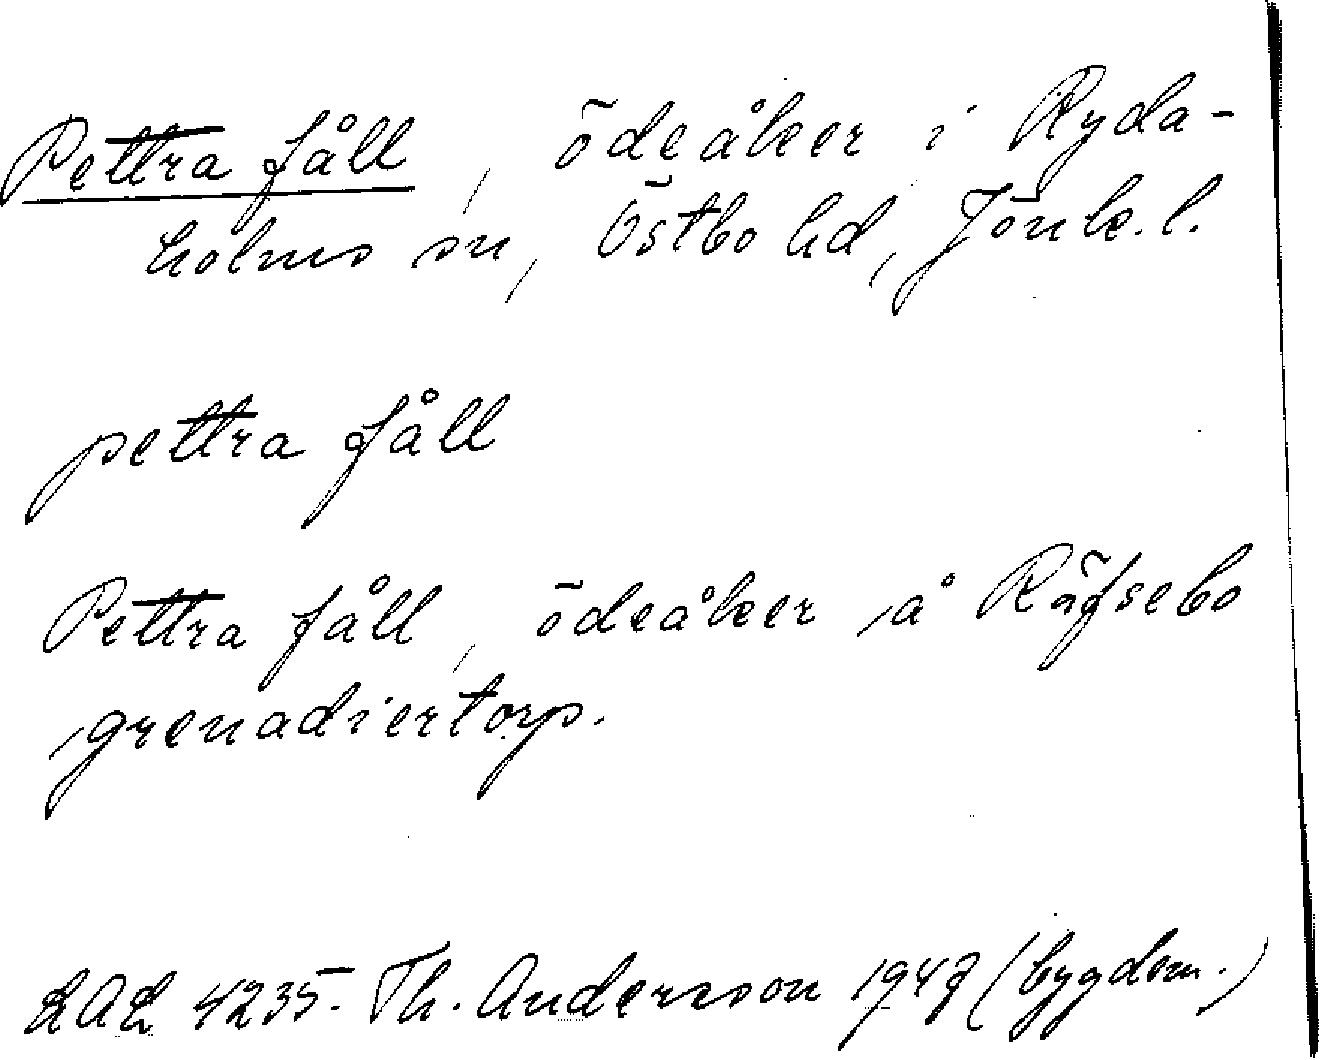 Pettra fåll, ödeåker i Ryda-
holms sn, Östbo hd, Jönk.l.
pettra fåll
Pettra fåll, ödeåker å Räfsebo
grenadiertorp.
4235. Th. Andersson (bygdem.)